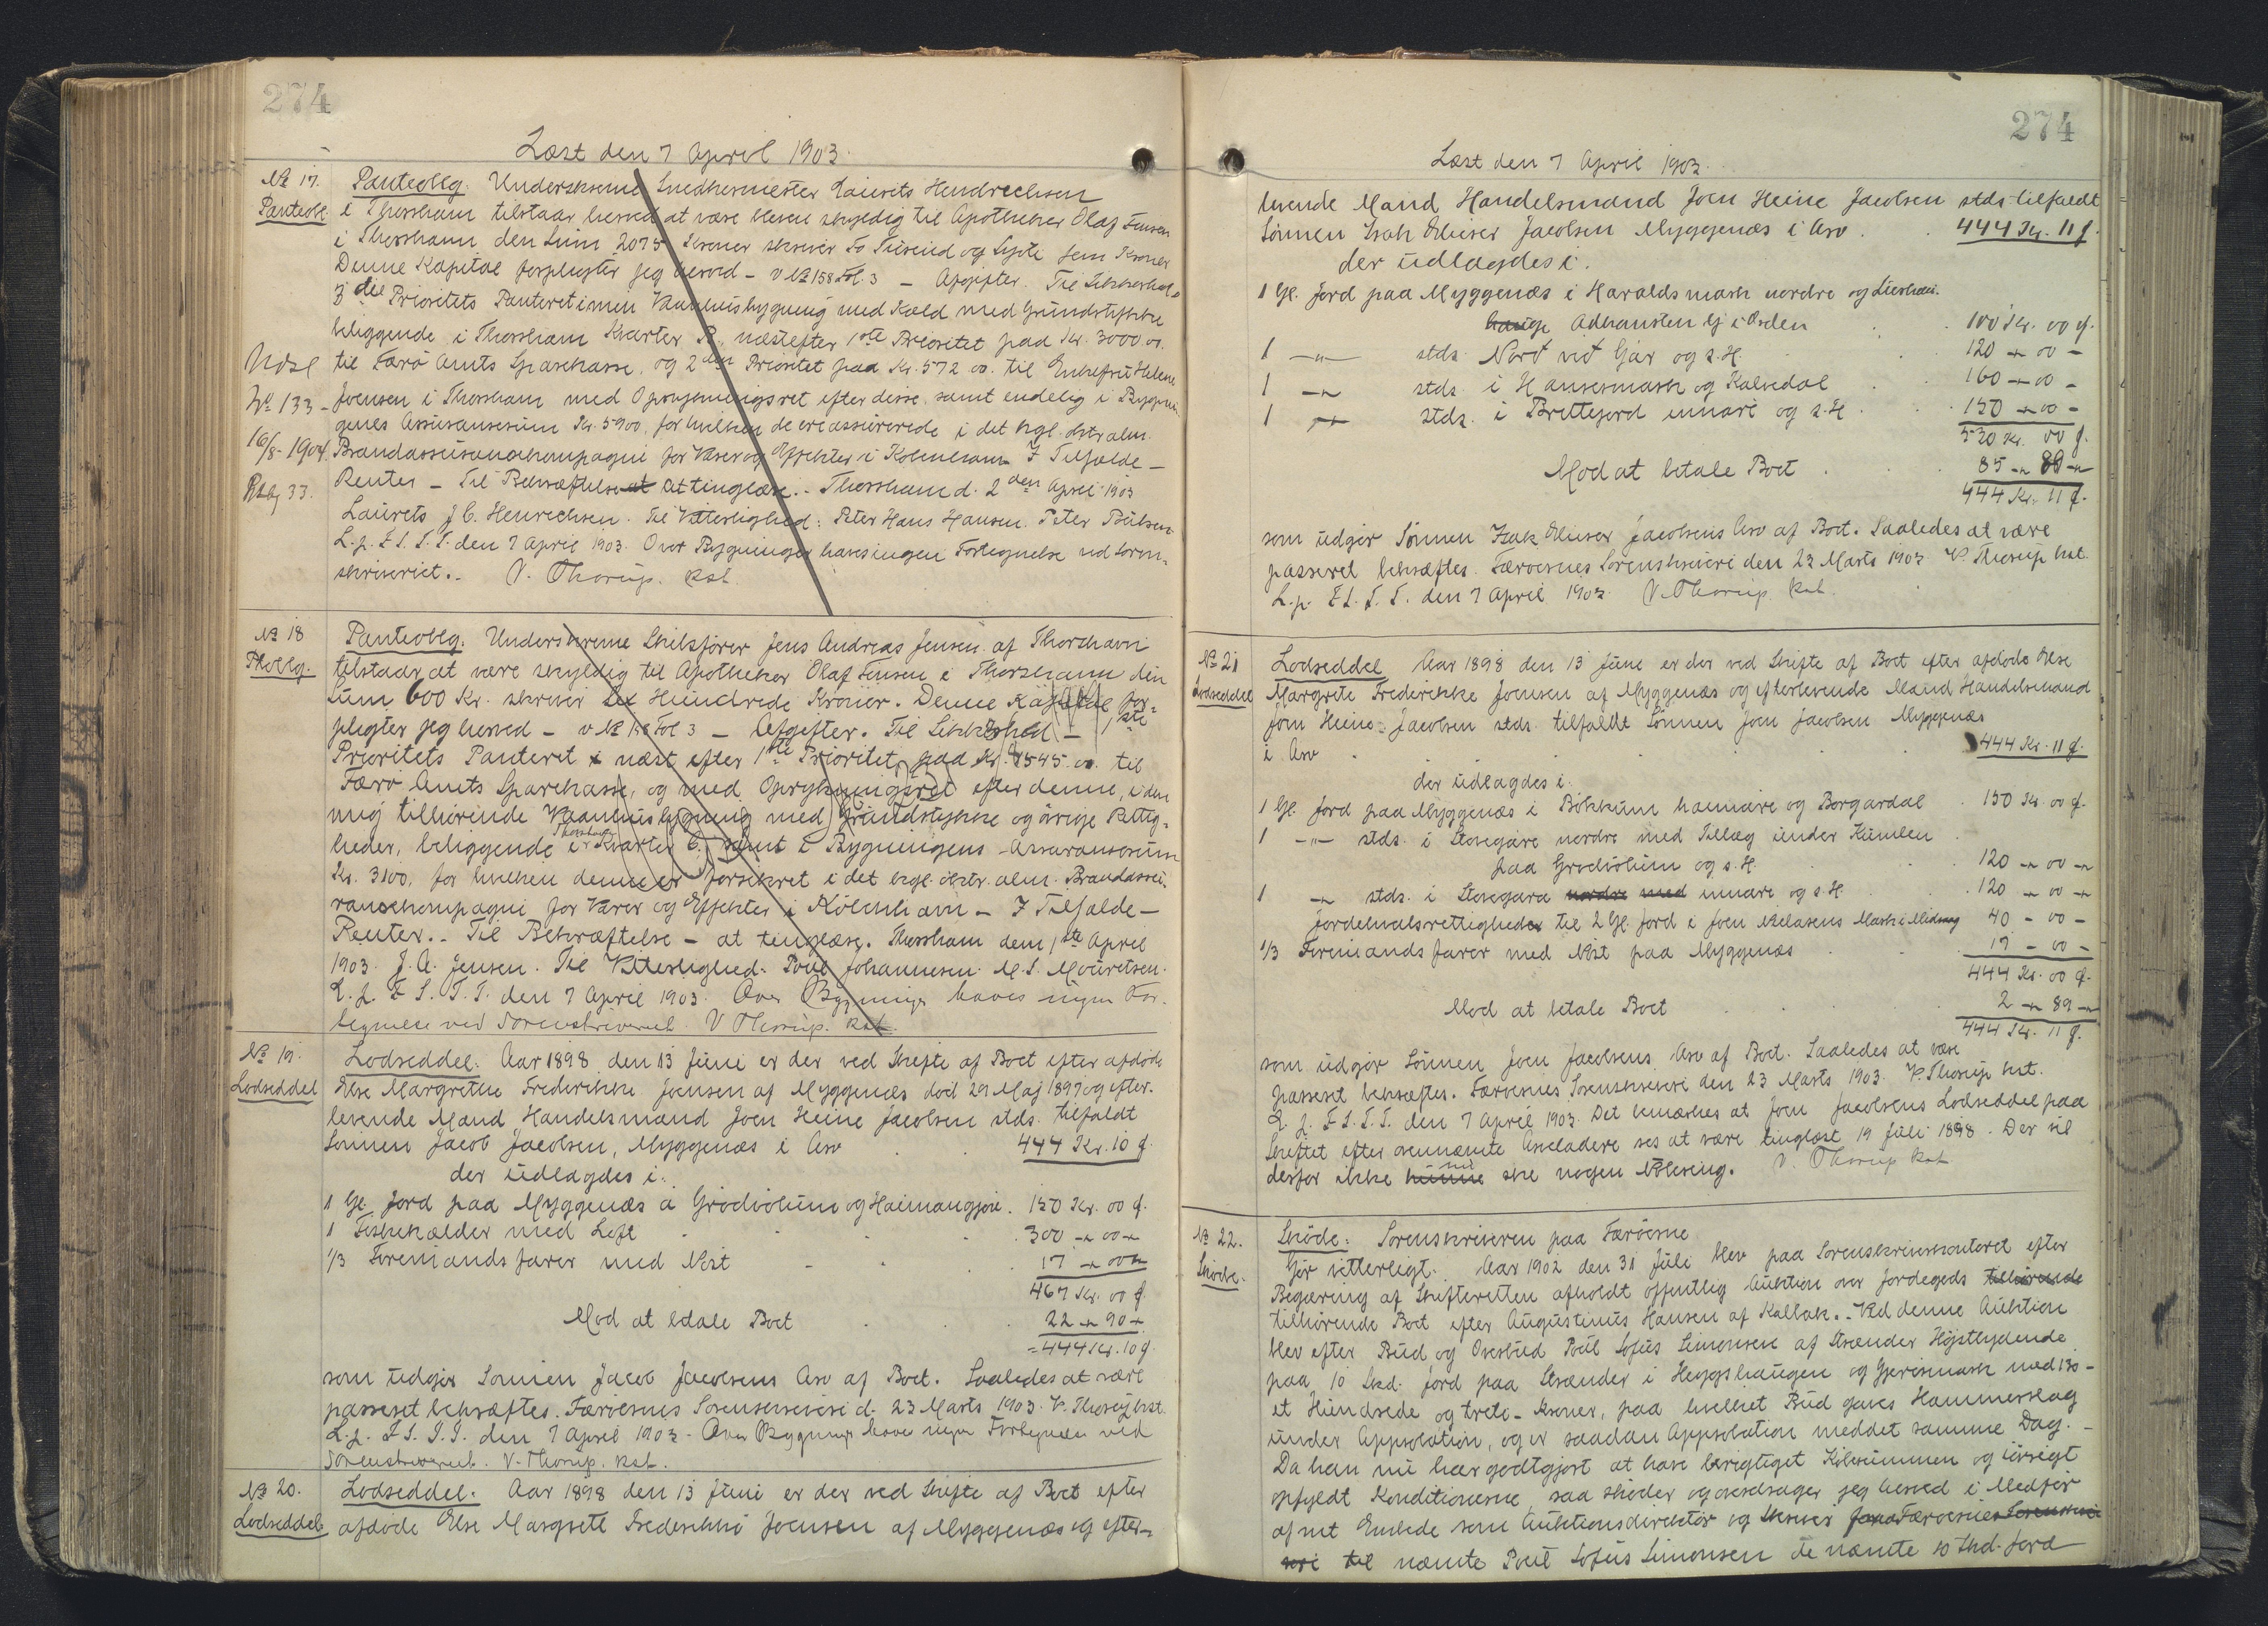 274
Læst den 7 April 1903.
No 17.
Panteobl.
Panteoblg. Underskrevne Snedkermester Laurits Hendrechsen
i Thorshavn tilstaar herved at være bleven skyldig til Apotheker Olaf Finsen
i Thorshavn den Sum 2075 Kroner skriver To Tusind og Sytti fem Kroner
Denne Kapital forpligter jeg herved - v No 158 Fol. 3 - Afgifter. Til Sikkerhed
3die Prioritets Panteret i min Vaaningsbygning med Kold med Grundstykke
beliggende i Thorshavn Kvarter B, næstefter 1ste Prioritet paa Kr. 3000.00.
til Færø Amts Sparekasse, og 2den Prioritet paa Kr. 572 00. til Enkefru Helene
Joensen i Thorshavn med Oprykningsret efter disse, samt endelig i Bygnin-
gens Assuransesum Kr. 5900, for hvilken de ere assurerede i det kgl. oktr. alm.
Brandassuranskompagni for Varer og Effekter i København I Tilfælde -
Renter - Til Bekræftelse at at tinglæse. - Thorshavn d. 2den April 1903
Laurits J C. Henrechsen. Til Vitterlighed: Peter Hans Hansen. Peter Poulsen
L. p. F. S. T. T. den 7 April 1903. Over Bygninger haves ingen Fortegnelse ved Soren-
skriveriet. - V. Thorup. kst.
Udsl
No 133 -
16/8 - 1904.
No 18
Ptoblg.
Panteoblg. Underskrevne Skibsfører Jens Andreas Jensen af Thorshavn
tilstaar at være skyldig til Apotheker Olaf Finsen i Thorshavn den
Sum 600 Kr. skriver Sex Hundrede Kroner. Denne Kapital for-
pligter jeg herved - v No 158 Fol 3 - Afgifter. Til Sikkerhed - 1ste
Prioritets Panteret i næst efter 1ste Prioritet paa Kr. 1545.00. til
Færø Amts Sparekasse, og med Oprykningsret efter denne, i den
mig tilhørende Vaaningsbygning med Grundstykke og øvrige Rettig-
heder, beliggende i Thorshavn Kvarter C, samt i Bygningens Assuransesum
Kr. 3100, for hvilken denne er forsikret i det kgl. oktr. alm. Brandassu-
ranskompagni for Varer og Effekter i København - I Tilfælde -
Renter. - Til Bekræftelse - at tinglæse. Thorshavn dem 1ste April
1903. J. A. Jensen. Til Vitterlighed. Poul Johannesen. M. S. Mouretsen.
L. p. F. S. T. T. den 7 April 1903. Over Bygninger haves ingen For-
tegnelse ved Sorenskriveriet. V Thorup. kst.
No 19.
Lodseddel
Lodseddel. Aar 1898 den 13 Juni er der ved Skifte af Boet efter afdøde
Else Margrethe Frederikke Joensen af Myggenæs død 29 Maj 1897 og efter-
levende Mand Handelsmand Joen Heine Jacobsen stds. tilfaldt
Sønnen Jacob Jacobsen, Myggenæs i Arv 444 Kr. 10 ø.
der udlagdes i:
1 Gl. Jord paa Myggenæs a Grødvolum og Haimangjøre. 150 Kr. 00 ø.
1 Fiskekælder med Loft 300 - " 00 - "
1/3 Feremands farer med Nøst 17 - " 00 "
467 Kr. 00 ø.
Mod at betale Boet 22 - " 90 - "
= 444 Kr. 10 ø.
som udgør Sønnen Jacob Jacobsens Arv af Boet. Saaledes at være
passeret bekræftes. Færøernes Sorenskriveri d. 23 Marts 1903. V. Thorup kst.
L. p. F. S. T. T. den 7 April 1903. Over Bygninger haves ingen Fortegnelse ved
Sorenskriveriet. V. Thorup. kst.
No 20.
Lodseddel.
Lodseddel. Aar 1898 den 13 Juni er der ved Skifte af Boet efter
afdøde Else Margrete Frederikke Joensen af Myggenæs og efter-
274
Læst den 7 April 1903.
levende Mand Handelsmand Joen Heine Jacobsen stds tilfaldt
Sønnen Isak Elieser Jacobsen Myggenæs i Arv. 444 Kr. 11 ø.
der udlagdes i.
1 Gl. Jord paa Myggenæs i Haraldsmark nordre og
100 Kr. 00 ø.
1 - " - stds. Nort vit Gjar og s. H. 120 - " 00 -
1 - " stds. i Hansesmark og Kalvedal 160 - " 00 -
1 - " stds. i Brettejord innare og s. H. 150 - " 00 -
530 Kr. 00 ø.
Mod at betale Boet 85 - " 89 - "
444 Kr. 11 ø.
som udgør Sønnen Isak Elieser Jacobsens Arv af Boet. Saaledes at være
passeret bekræftes. Færøernes Sorenskriveri den 23 Marts 1903. V. Thorup kst.
L. p. F. S. T. T. den 7 April 1903. V. Thorup. kst.
No 21
Lodseddel
Lodseddel Aar 1898 den 13 Juni er der ved Skifte af Boet efter afdøde Else
Margrete Frederikke Joensen af Myggenæs og efterlevende Mand Handelsmand
Joen Heine Jacobsen stds. tilfaldt Sønnen Joen Jacobsen Myggenæs
i Arv 444 Kr. 11 ø.
der udlagdes i.
1 Gl. Jord paa Myggenæs i Bøkkum haimare og Borgardal 150 Kr. 00 ø.
1 - " - stds. i Storegare nordre med Tillæg under Kumlen
paa Grødvolum og s. H. 120 - " 00 - "
1 - " stds. i Storegara nordre med innare og s. H. 120 - " 00 - "
Jordelvalsrettigheder til 2 Gl. Jord i Joen Nielasens Mark i 40 - 00 -
1/3 Feremands farer med Nøst paa Myggenæs 17 - 00 -
444 Kr. 00 ø.
Mod at betale Boet 2 - " 89 - "
444 Kr. 11 ø.
som udgør Sønnen Joen Jacobsens Arv af Boet. Saaledes at være
passeret bekræftes. Færøernes Sorenskriveri den 23 Marts 1903. V. Thorup kst.
L. p. F. S. T. T. den 7 April 1903. Det bemærkes at Joen Jacobsens Lodseddel paa
Skiftet efter ovennævnte Arveladere ses at være tinglæst 19 Juli 1898. Der vil
derfor ikke kunne nu ske nogen Notering. V. Thorup kst
No 22.
Skøde.
Skøde: Sorenskriveren paa Færøerne
Gør vitterligt: Aar 1902 den 31 Juli blev paa Sorenskriverkontoret efter
Begæring af Skifteretten afholdt offentlig Auktion over Jordegods tilhørende
tilhørende Boet efter Augustinus Hansen af Kalbak. - Ved denne Auktion
blev efter Bud og Overbud Poul Sofus Simonsen af Strænder Højstbydende
paa 10 Skd. Jord paa Strænder i Heygshaugen og Gjerismark med 130 -
et Hundrede og treti - Kroner, paa hvilket Bud gaves Hammerslag
under Approbation, og er saadan Approbation meddelt samme Dag. -
Da han nu har godtgjort at have berigtiget Købesummen og iøvrigt
opfyldt Konditionerne, saa skøder og overdrager jeg herved i Medfør
af mit Embede som Auktionsdirektør og Skriver paa Færøernes Sorenskri-
veri til nævnte Poul Sofus Simonsen de nævnte 10 Skd. Jord